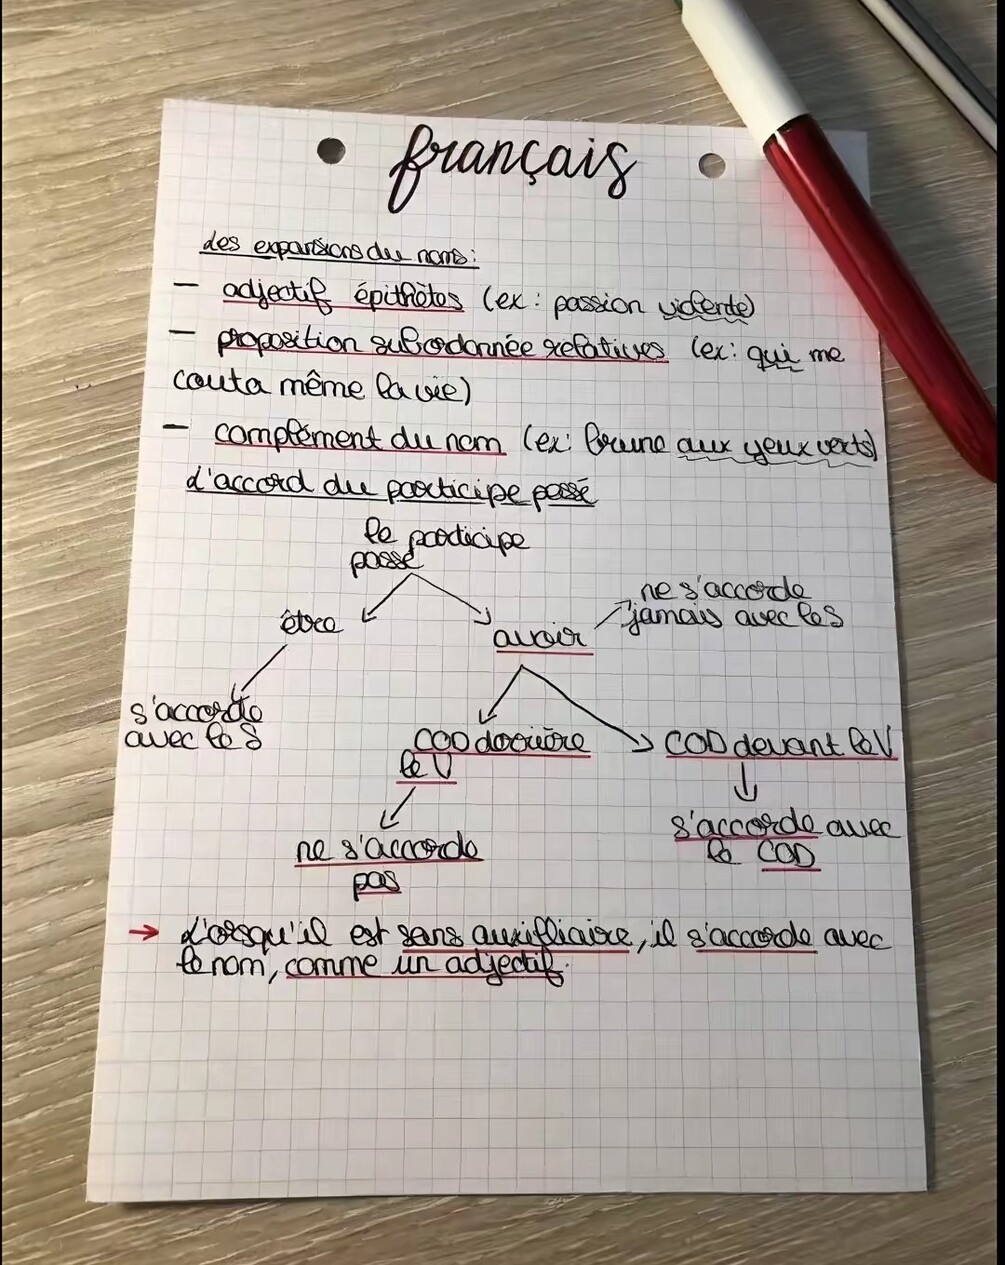 français
Les expansions du noms :
- adjectif épithètes (ex : passion violente)
- proposition subordonnée relatives (ex : qui me
couta même la vie)
- complément du nom (ex : brune aux yeux verts)
L'accord du participe passé
le participe
passé
ne s'accorde
jamais avec le S
être
avoir
s'accorde
avec le S
COD derrière
le V
COD devant le V
ne s'accorde
pas
s'accorde avec
le COD
→ Lorsqu'il est sans auxilliaire, il s'accorde avec
le nom, comme un adjectif.